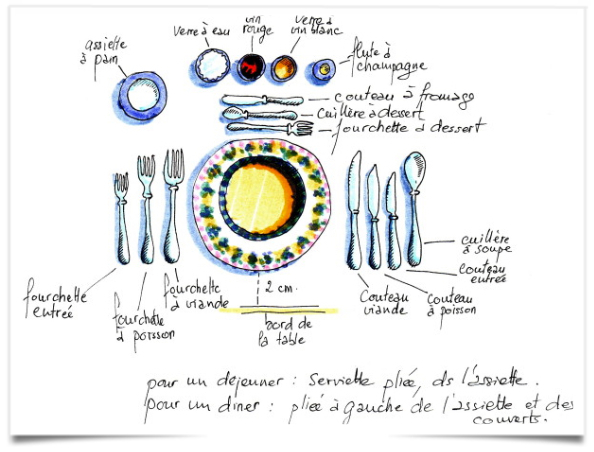 assiette
à pain
verre à eau
vin
rouge
verre à
vin blanc
flute à
champagne
couteau à fromage
cuillère à dessert
fourchette à dessert
fourchette
entrée
fourchette
à poisson
fourchette
à viande
2 cm.
bord de
la table
couteau
viande
couteau
à poisson
couteau
entrée
cuillère
à soupe
pour un déjeuner : serviette pliée, ds l'assiette.
pour un diner : pliée à gauche de l'assiette et des
couverts.